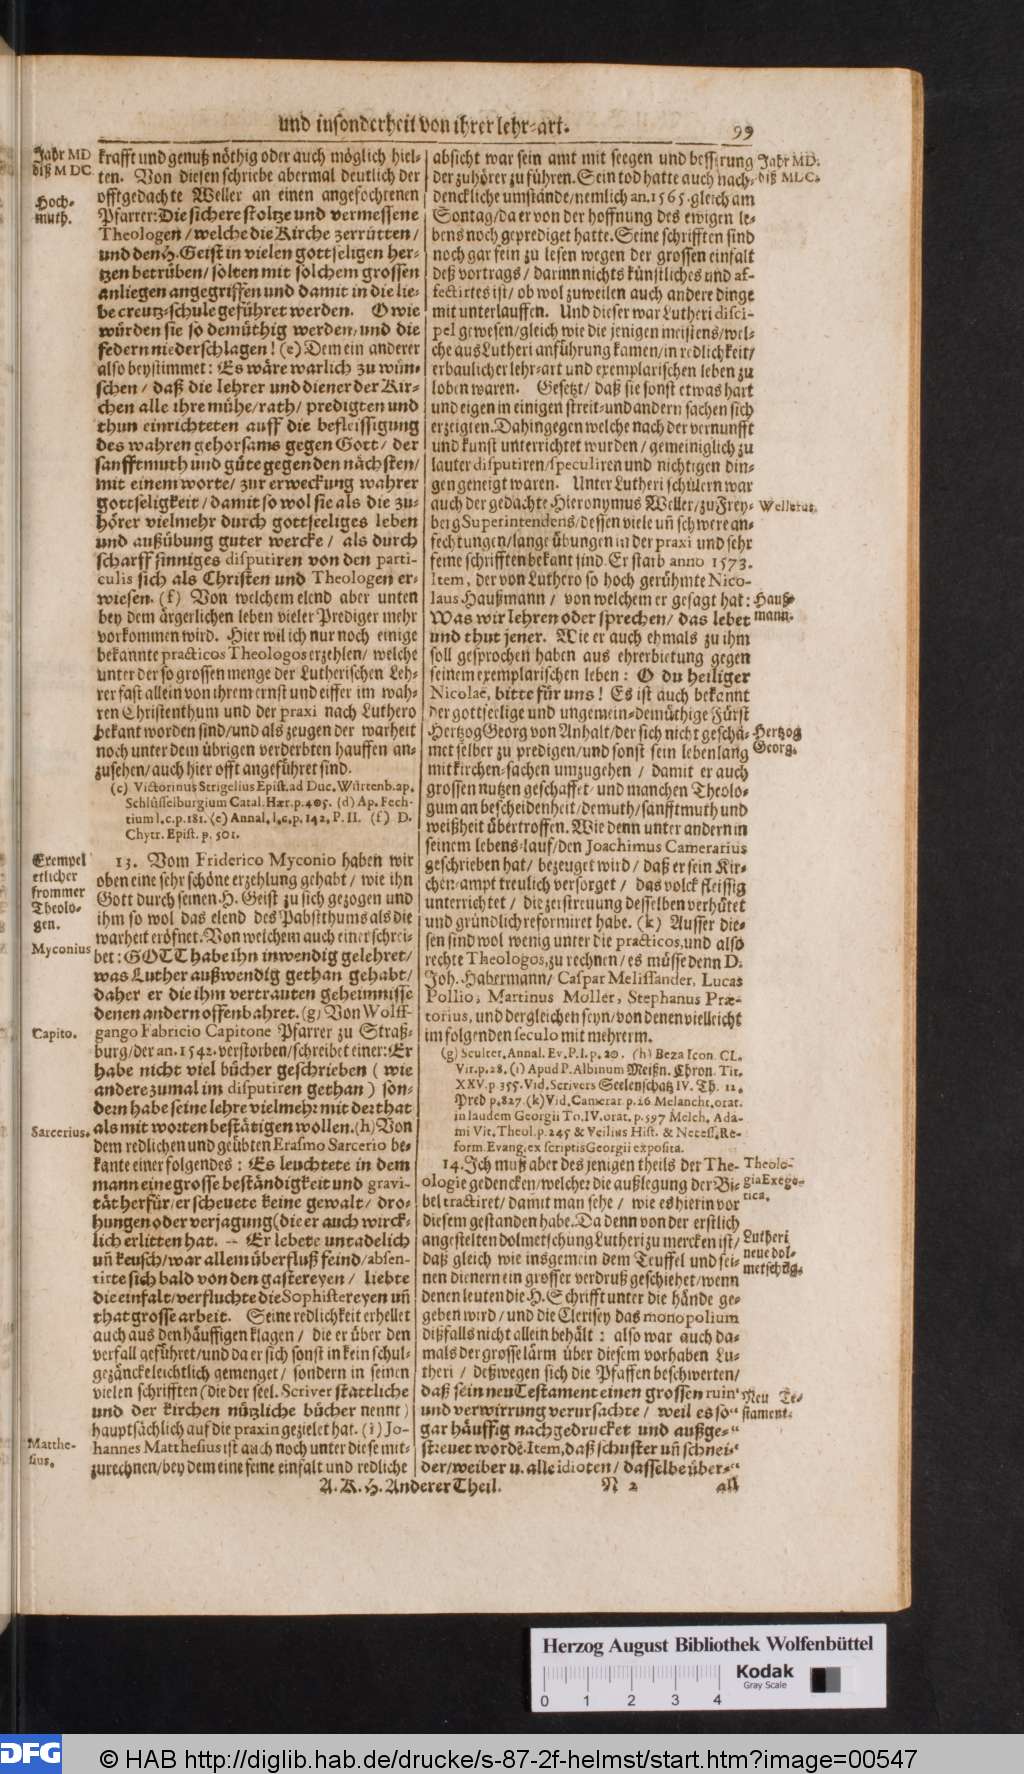 und insonderheit von ihrer lehr-art.
99
Jahr MD
biß M DC.
Hoch-
muth.
krafft und genuß nöthig oder auch möglich hiel-
ten. Von diesen schriebe abermal deutlich der
offtgedachte Weller an einen angefochtenen
Pfarrer: Die sichere stoltze und vermessene
Theologen / welche die Kirche zerrütten /
und den H. Geist in vielen gottseligen her-
tzen betrüben / solten mit solchem grossen
anliegen angegriffen und damit in die lie-
be creutz-schule geführet werden. O wie
würden sie so demüthig werden / und die
federn niederschlagen! (e) Dem ein anderer
also beystimmet: Es wäre warlich zu wün-
schen / daß die lehrer und diener der Kir-
chen alle ihre mühe / rath / predigten und
thun einrichteten auff die befleissigung
des wahren gehorsams gegen Gott / der
sanfftmuth und güte gegen den nächsten /
mit einem worte / zur erweckung wahrer
gottseligkeit / damit so wol sie als die zu-
hörer vielmehr durch gottseeliges leben
und außübung guter wercke / als durch
scharffsinniges disputiren von den parti-
culis sich als Christen und Theologen er-
wiesen. (f) Von welchem elend aber unten
bey dem ärgerlichen leben vieler Prediger mehr
vorkommen wird. Hier wil ich nur noch einige
bekannte practicos Theologos erzehlen / welche
unter der so grossen menge der Lutherischen Leh-
rer fast allein von ihrem ernst und eiffer im wah-
ren Christenthum und der praxi nach Luthero
bekant worden sind / und als zeugen der warheit
noch unter dem übrigen verderbten hauffen an-
zusehen / auch hier offt angeführet sind.
(c) Victorinus Strigelius Epist. ad Duc. Würtenb. ap.
Schlüsselburgium Catal. Hær. p. 405. (d) Ap. Fech-
tium l. c. p. 181. (e) Annal. l. c. p. 142. P. II. (f) D.
Chytr. Epist. p. 501.
Exempel
etlicher
frommer
Theolo-
gen.
Myconius
13. Vom Friderico Myconio haben wir
oben eine sehr schöne erzehlung gehabt / wie ihn
Gott durch seinen H. Geist zu sich gezogen und
ihm so wol das elend des Pabstthums als die
warheit eröfnet. Von welchem auch einer schrei-
bet: GOTT habe ihn inwendig gelehret /
was Luther außwendig gethan gehabt /
daher er die ihm vertrauten geheimnisse
denen andern offenbahret. (g) Von Wolff-
Capito.
gango Fabricio Capitone Pfarrer zu Straß-
burg / der an. 1542. verstorben / schreibet einer: Er
habe nicht viel bücher geschrieben (wie
andere zumal im disputiren gethan) son-
dern habe seine lehre vielmehr mit der that
als mit worten bestätigen wollen. (h) Von
Sarcerius.
dem redlichen und geübten Erasmo Sarcerio be-
kante einer folgendes: Es leuchtete in dem
mann eine grosse beständigkeit und gravi-
tät herfür / er scheuete keine gewalt / dro-
hungen oder verjagung (die er auch wirck-
lich erlitten hat. -- Er lebete untadelich
uñ keusch / war allem überfluß feind / absen-
tirte sich bald von den gastereyen / liebte
die einfalt / verfluchte die Sophistereyen uñ
that grosse arbeit. Seine redlichkeit erhellet
auch aus den häuffigen klagen / die er über den
verfall geführet / und da er sich sonst in kein schul-
gezäncke leichtlich gemenget / sondern in seinen
vielen schrifften (die der seel. Scriver stattliche
und der kirchen nützliche bücher nennt)
hauptsächlich auf die praxin gezielet hat. (i) Jo-
Matthe-
sius.
hannes Matthesius ist auch noch unter diese mit-
zurechnen / bey dem eine feine einfalt und redliche
absicht war sein amt mit seegen und besserung
der zuhörer zu führen. Sein tod hatte auch nach-
denckliche umstände / nemlich an. 1565. gleich am
Sontag / da er von der hoffnung des ewigen le-
bens noch geprediget hatte. Seine schrifften sind
noch gar fein zu lesen wegen der grossen einfalt
deß vortrags / darinn nichts künstliches und af-
fectirtes ist / ob wol zuweilen auch andere dinge
mit unterlauffen. Und dieser war Lutheri disci-
pel gewesen / gleich wie die jenigen meistens / wel-
che aus Lutheri anführung kamen / in redlichkeit /
erbaulicher lehr-art und exemplarischen leben zu
loben waren. Gesetzt / daß sie sonst etwas hart
und eigen in einigen streit- und andern sachen sich
erzeigten. Dahingegen welche nach der vernunfft
und kunst unterrichtet wurden / gemeiniglich zu
lauter disputiren / speculiren und nichtigen din-
gen geneigt waren. Unter Lutheri schülern war
auch der gedachte Hieronymus Weller / zu Frey-
berg Superintendens / dessen viele uñ schwere an-
fechtungen / lange übungen in der praxi und sehr
feine schrifften bekant sind. Er starb anno 1573.
Item, der von Luthero so hoch gerühmte Nico-
laus Haußmann / von welchem er gesagt hat:
Was wir lehren oder sprechen / das lebet
und thut jener. Wie er auch ehmals zu ihm
soll gesprochen haben aus ehrerbietung gegen
seinem exemplarischen leben: O du heiliger
Nicolaë, bitte für uns! Es ist auch bekannt
der gottseelige und ungemein-demüthige Fürst
Hertzog Georg von Anhalt / der sich nicht geschä-
met selber zu predigen / und sonst sein lebenlang
mit kirchen-sachen umzugehen / damit er auch
grossen nutzen geschaffet / und manchen Theolo-
gum an bescheidenheit / demuth / sanfftmuth und
weißheit übertroffen. Wie denn unter andern in
seinem lebens-lauf / den Joachimus Camerarius
geschrieben hat / bezeuget wird / daß er sein Kir-
chen-ampt treulich versorget / das volck fleissig
unterrichtet / die zerstreuung desselben verhütet
und gründlich reformiret habe. (k) Ausser die-
sen sind wol wenig unter die practicos, und also
rechte Theologos, zu rechnen / es müsse denn D.
Joh. Habermann / Caspar Melissander, Lucas
Pollio, Martinus Moller, Stephanus Præ-
torius, und dergleichen seyn / von denen vielleicht
im folgenden seculo mit mehrerm.
Jahr MD.
biß MDC.
Wellerus.
Hauß-
mann.
Hertzog
Georg.
(g) Scultet. Annal. Ev. P. I. p. 20. (h) Beza Icon. CL.
Vir. p. 28. (i) Apud P. Albinum Meißn. Chron. Tit.
XXV. p 355. Vid. Scrivers Seelenschatz IV. Th. 12.
Pred p. 827. (k) Vid. Camerar. p. 26 Melancht. orat.
in laudem Georgii To. IV. orat. p. 597 Melch. Ada-
mi Vit. Theol. p. 245 & Veilius Hist. & Necess. Re-
form. Evang. ex scriptis Georgii exposita.
14. Ich muß aber des jenigen theils der The-
ologie gedencken / welcher die außlegung der Bi-
bel tractiret / damit man sehe / wie es hierin vor
diesem gestanden habe. Da denn von der erstlich
angestelten dolmetschung Lutheri zu mercken ist /
daß gleich wie insgemein dem Teuffel und sei-
nen dienern ein grosser verdruß geschiehet / wenn
denen leuten die H. Schrifft unter die hände ge-
geben wird / und die Clerisey das monopolium
dißfalls nicht allein behält: also war auch da-
mals der grosse lärm über diesem vorhaben Lu-
theri / deßwegen sich die Pfaffen beschwerten /
daß sein neu Testament einen grossen ruin
und verwirrung verursachte / weil es so
gar häuffig nachgedrucket und außge-
streuet wordẽ. Item, daß schuster uñ schnei-
der / weiber u. alle idioten / dasselbe über-
Theolo-
gia Exege-
tica.
Lutheri
neue dol-
metschũg.
Neu Te-
stament.
A. K. H. Anderer Theil.
N 2
all
Herzog August Bibliothek Wolfenbüttel
0 1 2 3 4
Kodak
Gray Scale
DFG
© HAB http://diglib.hab.de/drucke/s-87-2f-helmst/start.htm?image=00547